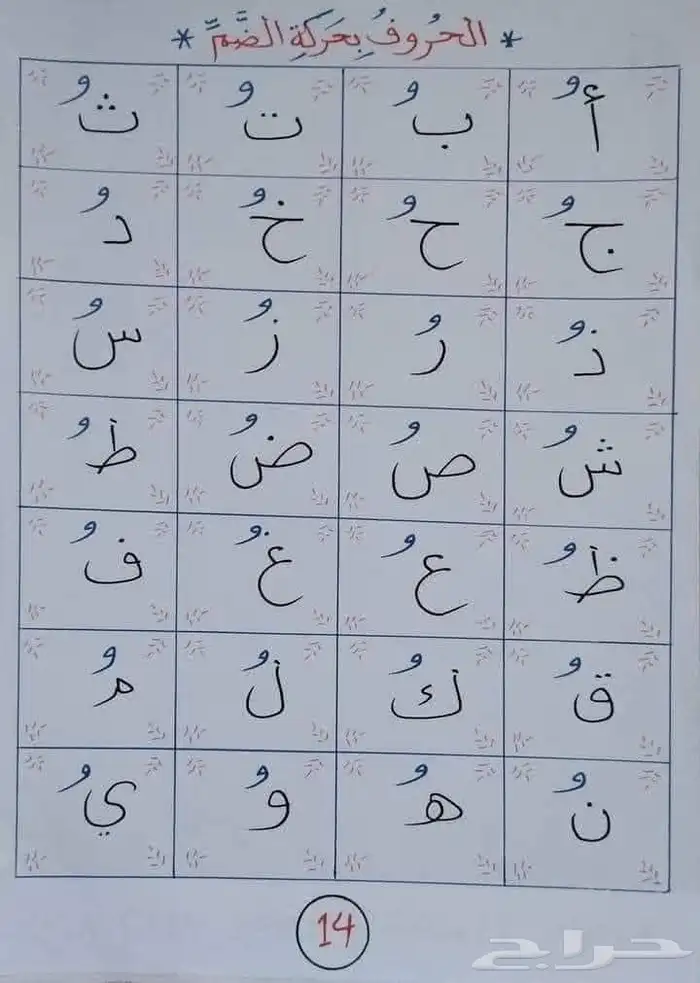 * الحُروفُ بِحَرَكَةِ الضَّمِّ *
أُ بُ تُ ثُ
جُ حُ خُ دُ
ذُ رُ زُ سُ
شُ صُ ضُ طُ
ظُ عُ غُ فُ
قُ كُ لُ مُ
نُ هُ وُ يُ
14
حراج